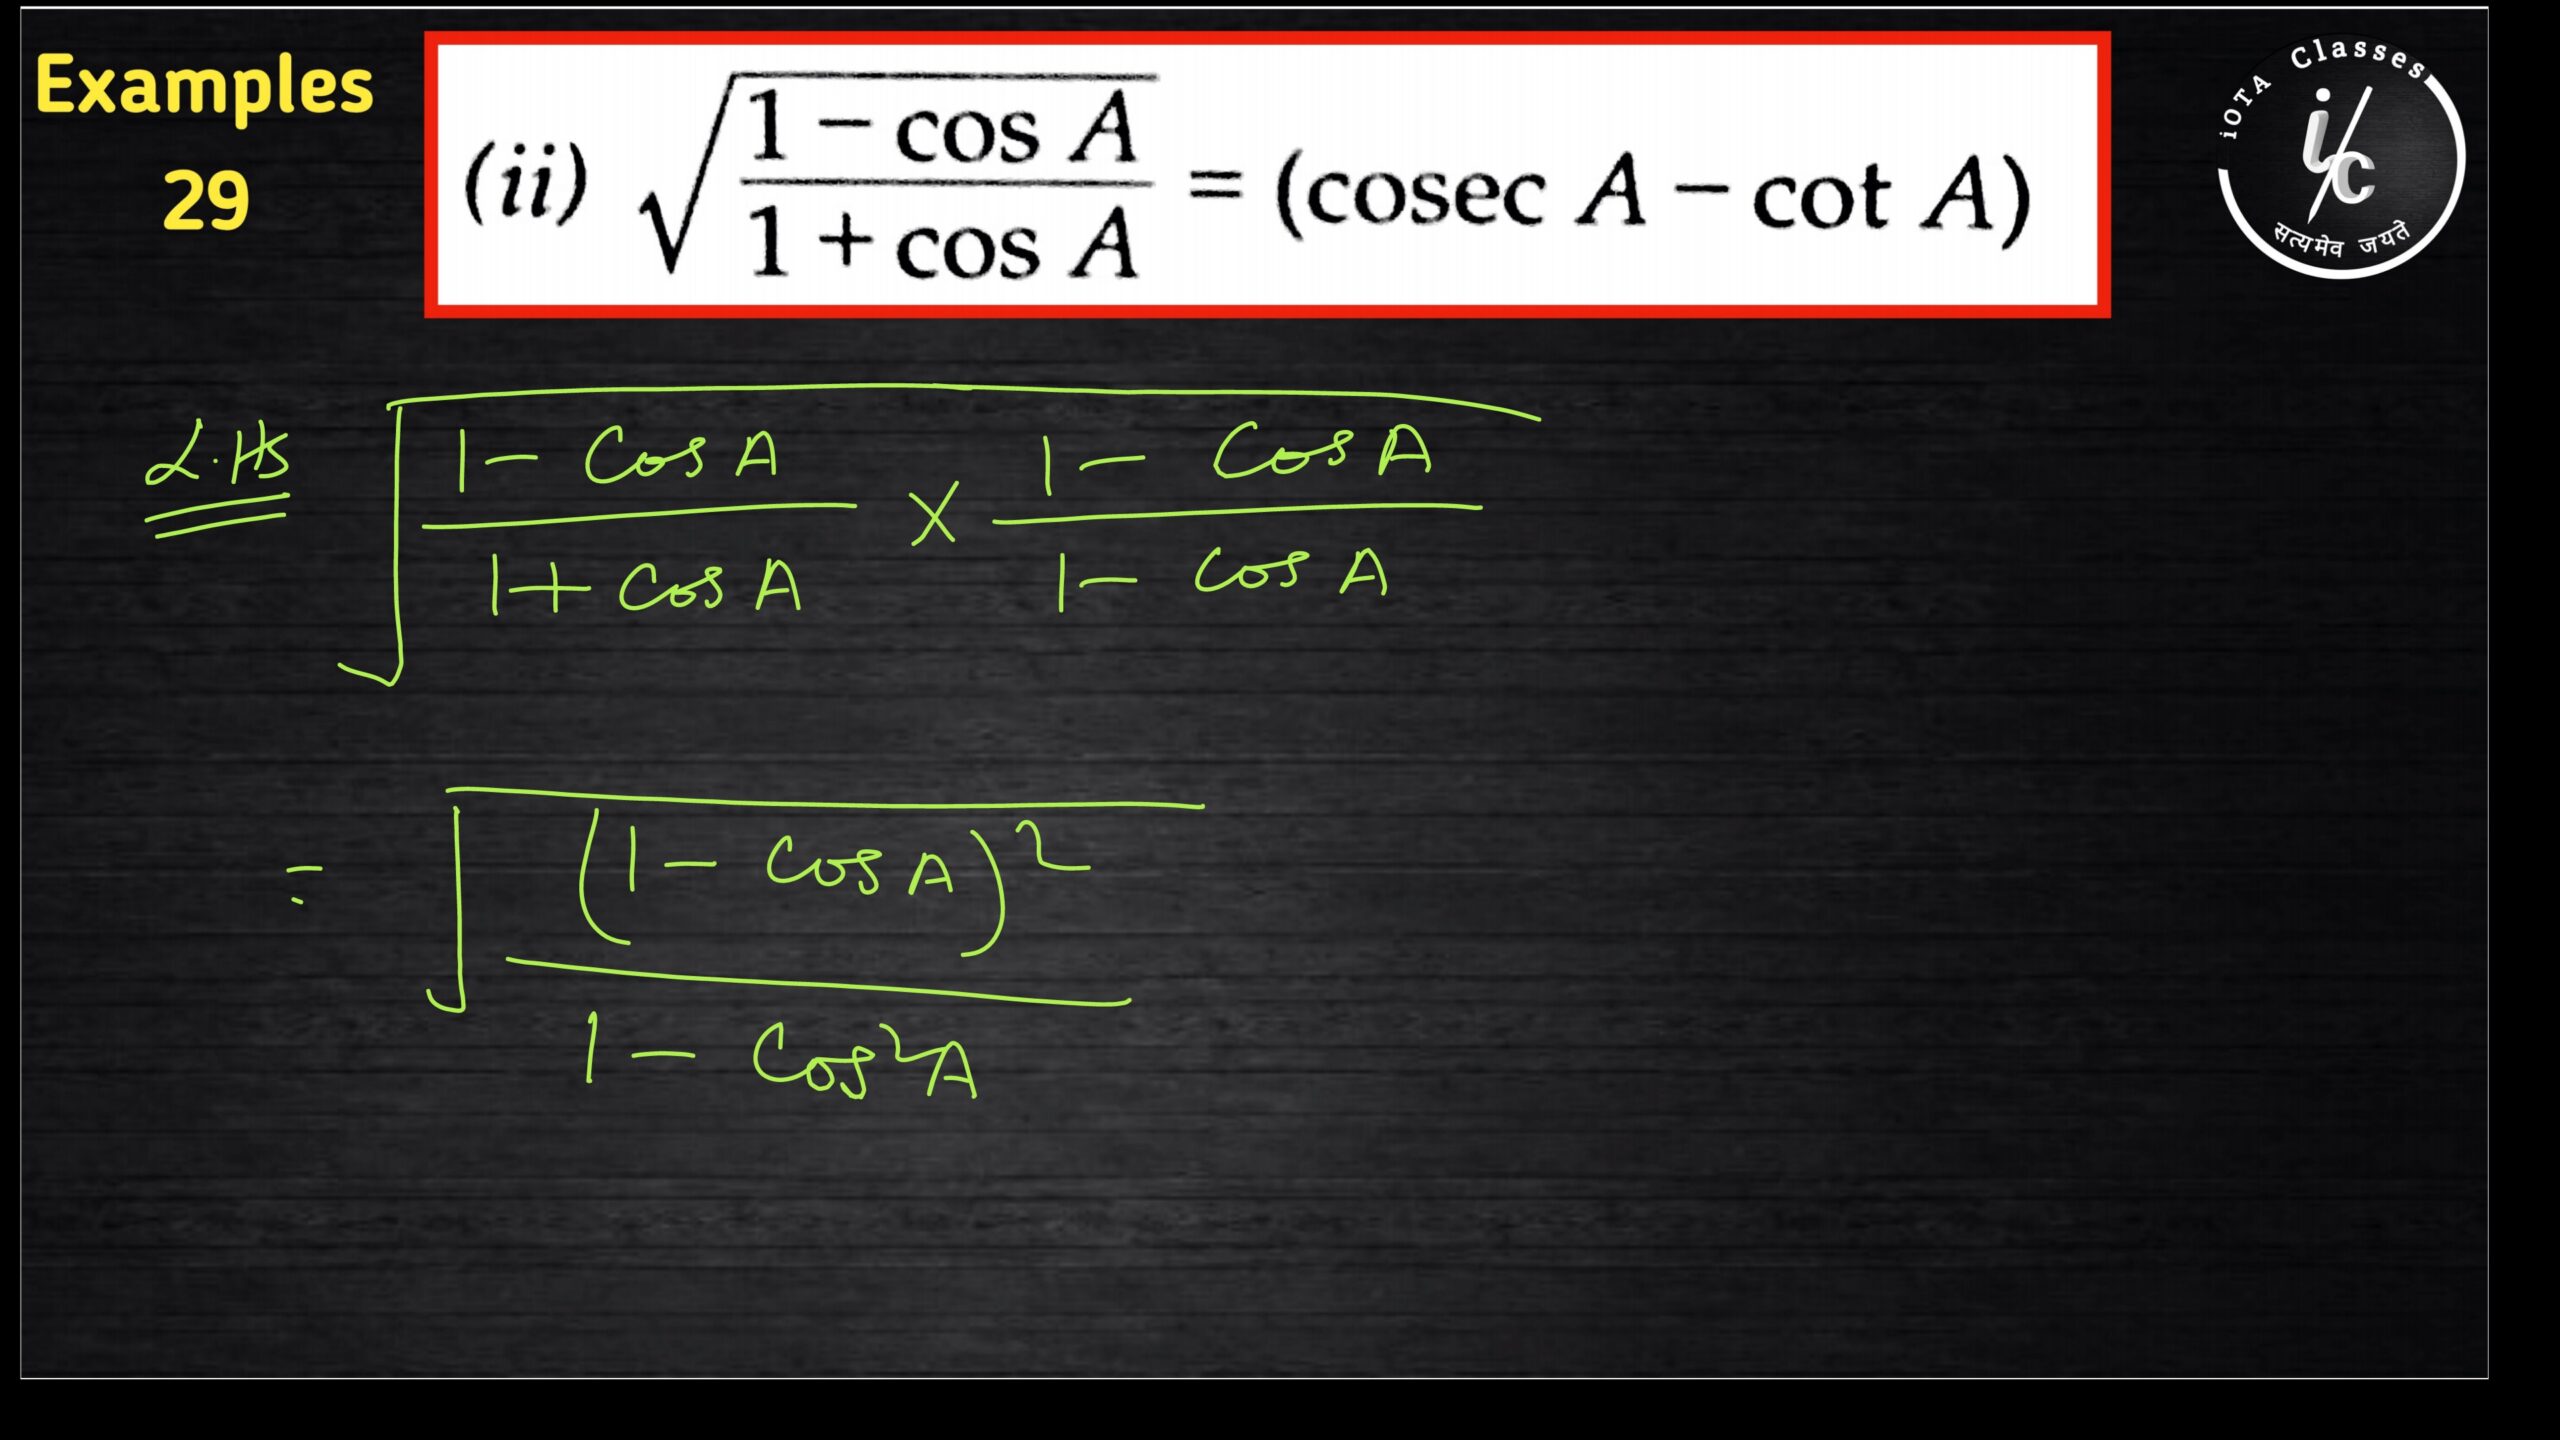 Examples
29
(ii) √((1 − cos A)/(1 + cos A)) = (cosec A − cot A)
iOTA Classes
i/c
सत्यमेव जयते
L.HS √((1 − Cos A)/(1 + Cos A) × (1 − Cos A)/(1 − Cos A))
= √((1 − Cos A)²/(1 − Cos²A))